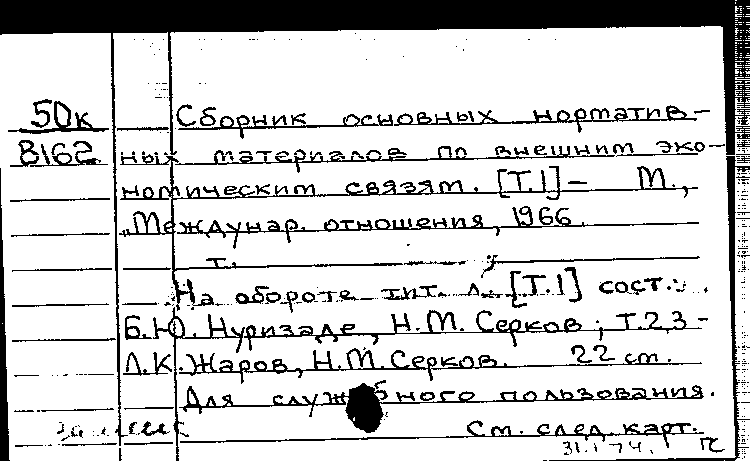 50к Сборник основных норматив-
8162 ных материалов по внешним эко-
номическим связям. [Т.1] – М.,
„Междунар. отношения, 1966.
т.
На обороте тит. л. [Т.1] сост.:
Б.Ю. Нуризаде, Н.М. Серков; Т.2,3-
Л.К. Жаров, Н.М. Серков. 22 см.
Для служебного пользования.
См. след. карт.
31.1.74.